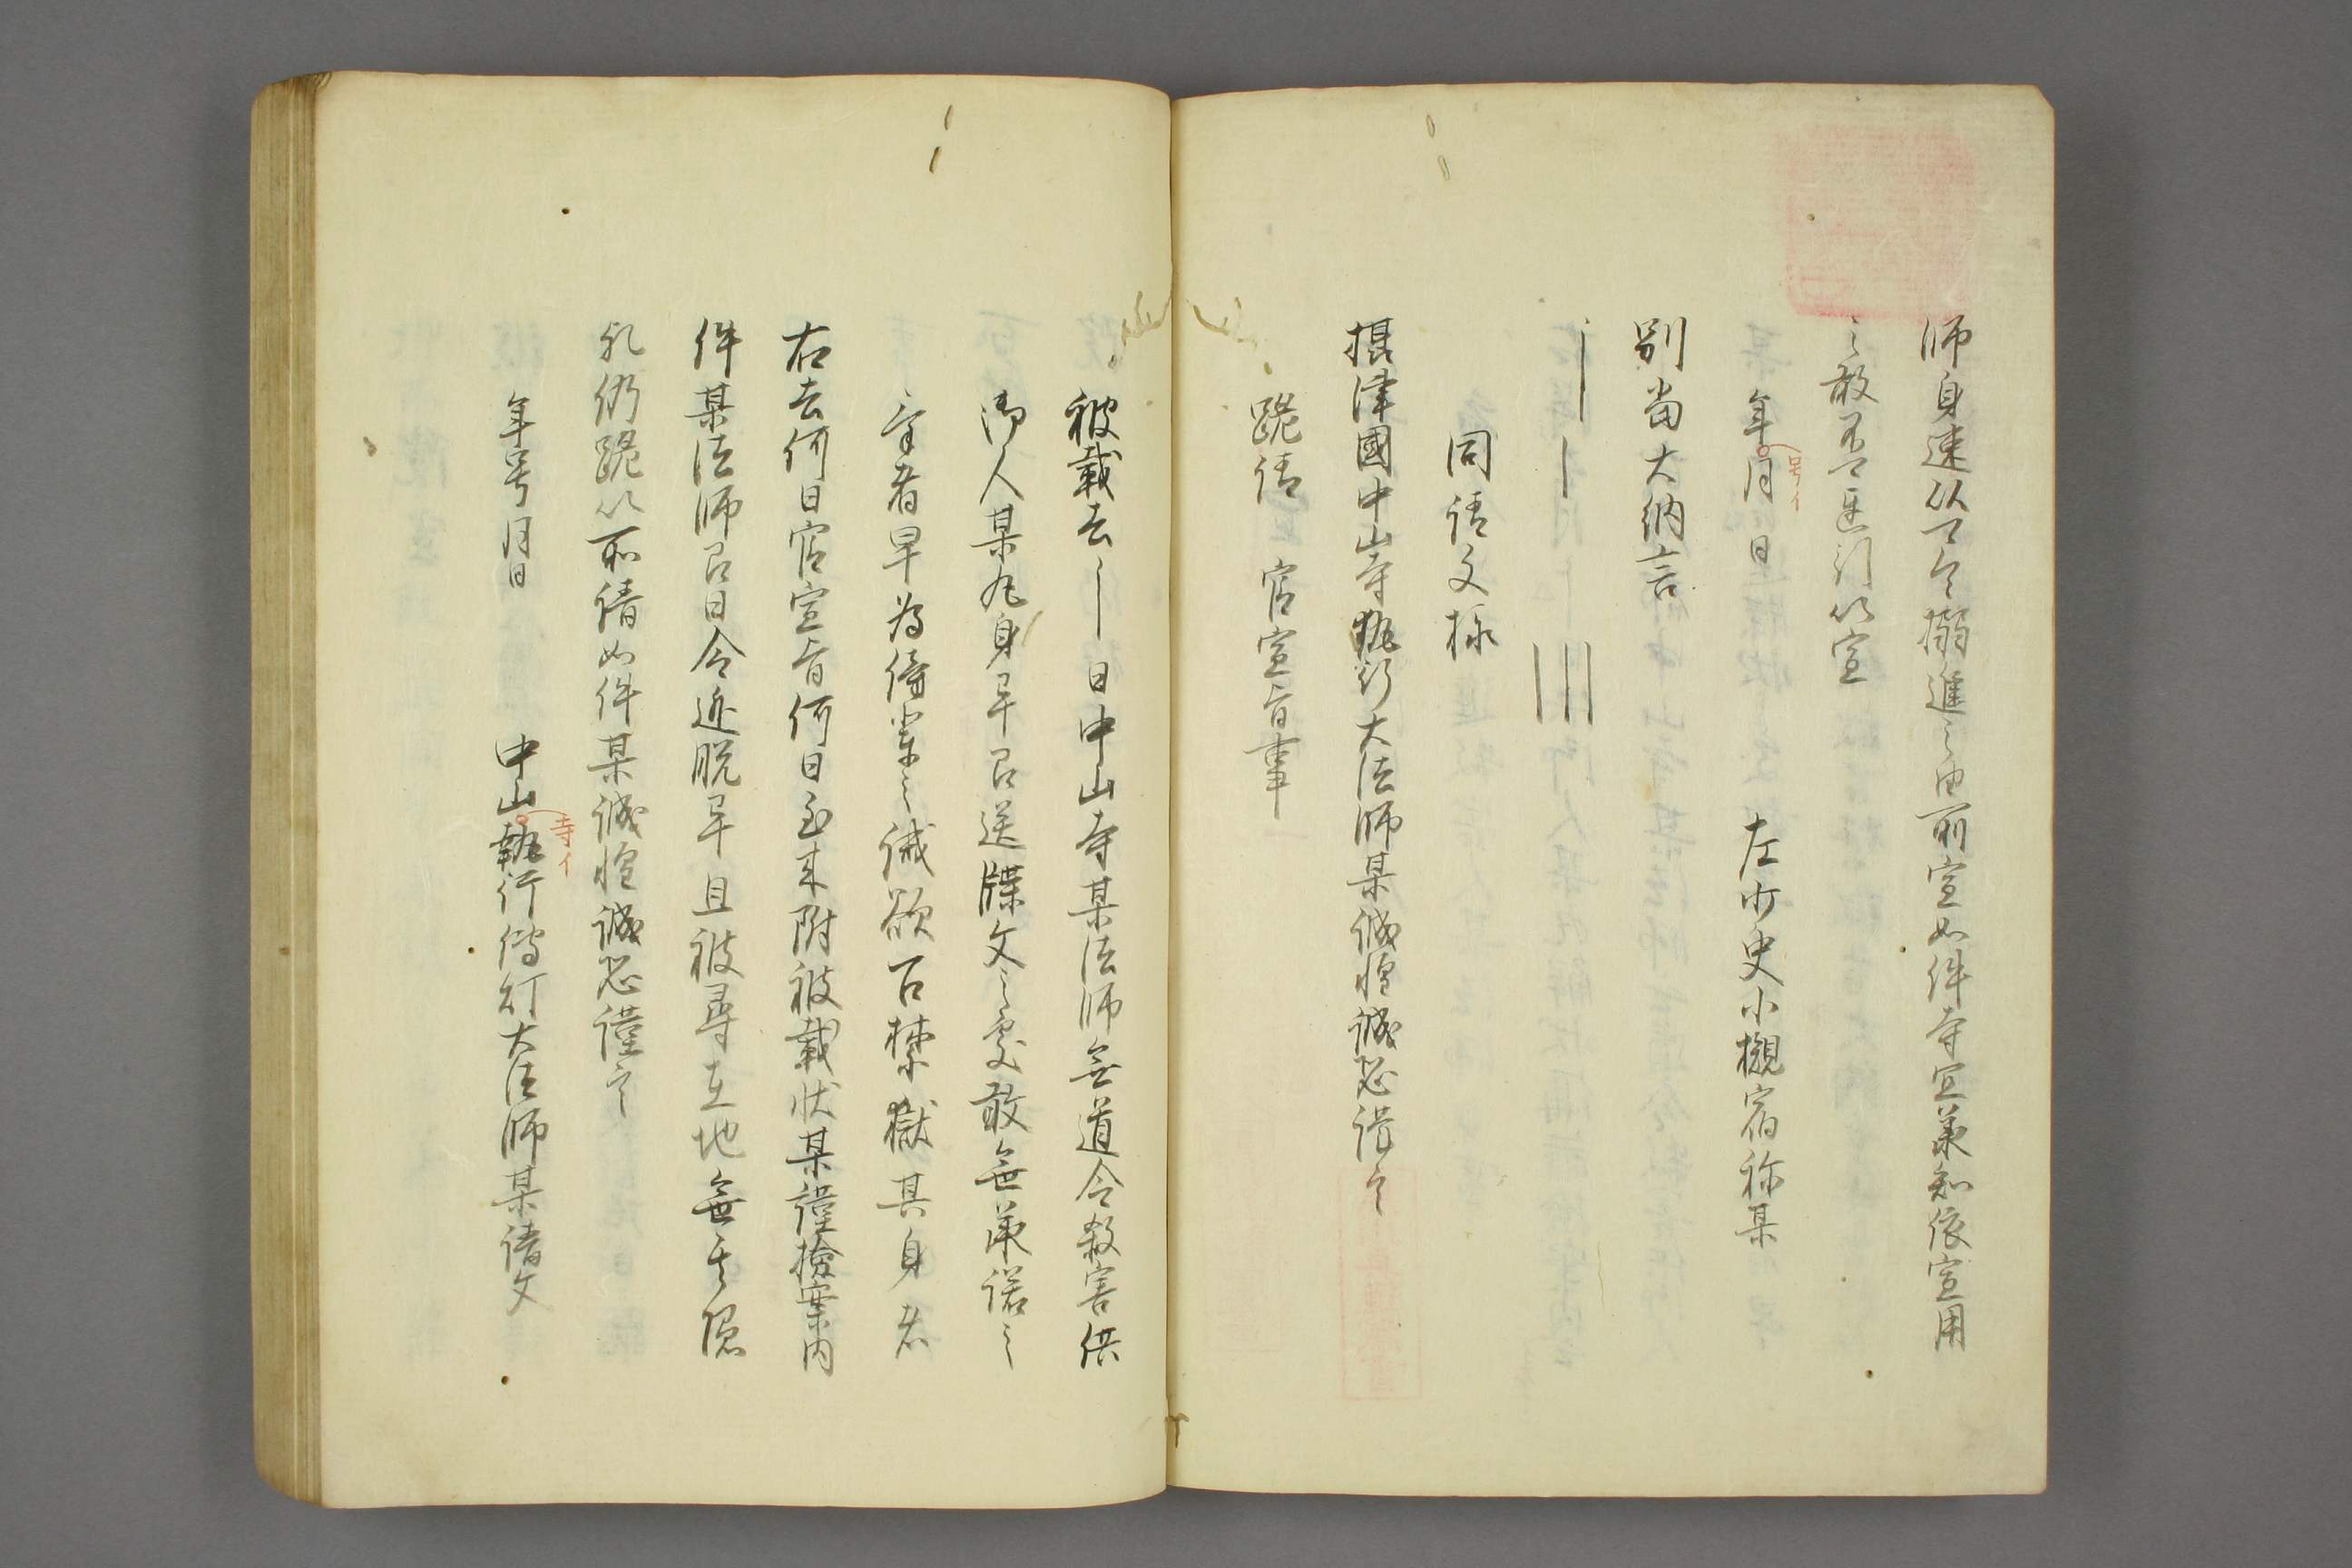 師身速以可令搦進之由所宣如件寺宜承知依宣用
之敢不違引以宣
年月日 左少史小槻宿祢某
号イ
別當大納言
同請文様
摂津國中山寺執行大法師某誠惶誠恐謹言
跪請 官宣旨事
被載去 日中山寺某法師無道令殺害供
御人某丸身早召送牒文之處敢無承諾之
者早為傍輩之誡欲召禁獄其身者
右去何日官宣旨何日到来附被載状某謹撿案内
件某法師召日令逃脱早且被尋在地無其隠
礼仍跪以所請如件某誠惶誠恐謹言
年号月日 中山執行傳灯大法師某請文
寺イ